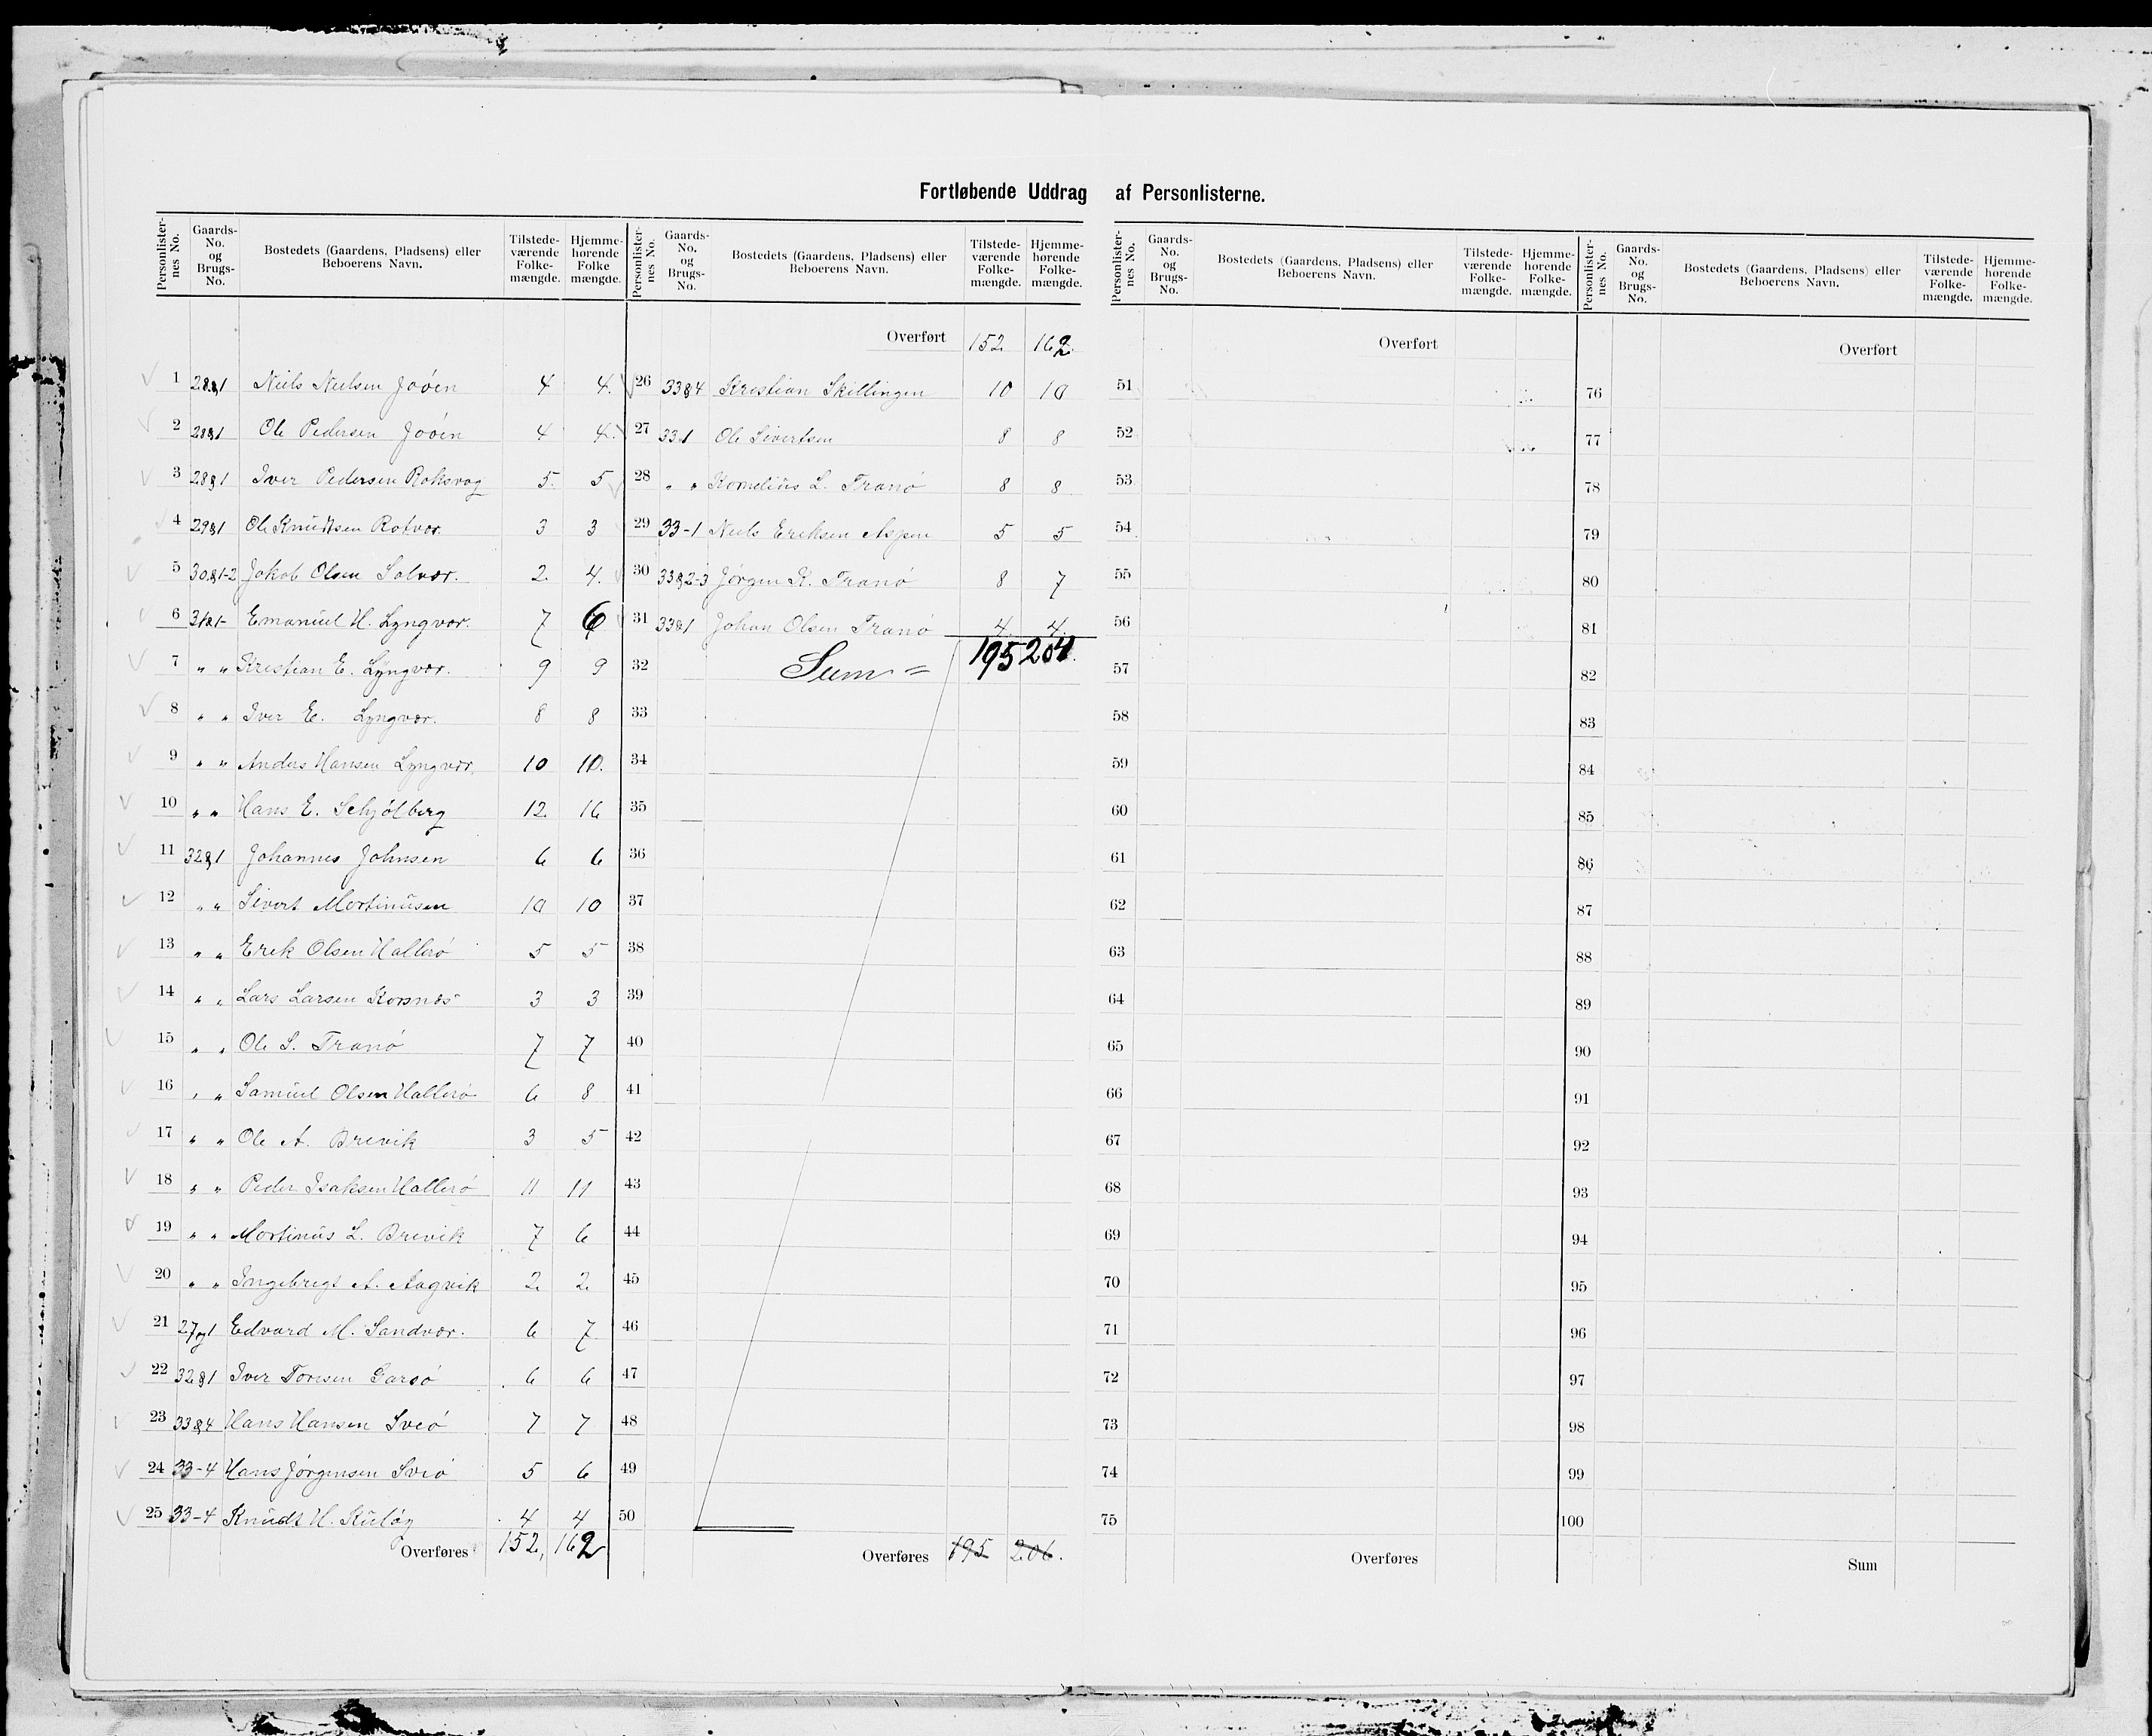 Fortløbende Uddrag af Personlisterne.
Personlisternes No. Gaards-No. og Brugs-No. Bostedets (Gaardens, Pladsens) eller Beboerens Navn. Tilstedeværende Folkemængde. Hjemmehørende Folkemængde.
1 28&1 Niels Nielsen Joøen 4 4.
2 28&1 Ole Pedersen Joøen 4 4.
3 28&1 Iver Pedersen Roksvog 5. 5
4 29&1 Ole Knudtsen Rotvær. 3 3
5 30&1-2 Jakob Olsen Solvær. 2. 4.
6 31&1- Emanuel H. Lyngvær. 7 6
7 " " Kristian E. Lyngvær. 9 9
8 " " Iver E. Lyngvær. 8 8
9 " " Anders Hansen Lyngvær. 10 10.
10 " " Hans E. Schjølberg 12. 16
11 32&1 Johannes Johnsen 6 6
12 " " Sivert Mortinusen 10 10
13 " " Erik Olsen Hallerø 5 5
14 " " Lars Larsen Korsnes 3 3
15 " " Ole S. Tranø 7 7
16 " " Samuel Olsen Hallerø 6 8
17 " " Ole A. Brevik 3 5
18 " " Peder Isaksen Hallerø 11 11
19 " " Mortinus L. Brevik 7 6
20 " " Ingebrigt A. Aagvik 2. 2.
21 27og1 Edvard M. Sandvær. 6 7
22 32&1 Iver Toresen Garsø 6 6
23 33&4 Hans Hansen Sveø 7 7
24 33-4 Hans Jørgensen Sveø 5 6
25 33-4 Knudt H. Kuløy 4 4
Overføres 152, 162
Personlisternes No. Gaards-No. og Brugs-No. Bostedets (Gaardens, Pladsens) eller Beboerens Navn. Tilstedeværende Folkemængde. Hjemmehørende Folkemængde.
Overført 152 162.
26 33&4 Kristian Skillingen 10 10
27 33.1 Ole Sivertsen 8 8
28 " " Kornelius L. Tranø 8 8
29 33-1 Niels Eriksen Aspen 5 5
30 33&2-3 Jørgen K. Tranø 8 7
31 33&1 Johan Olsen Tranø 4. 4.
32 Sum = 195 204.
33
34
35
36
37
38
39
40
41
42
43
44
45
46
47
48
49
50
Overføres 195 206.
Personlisternes No. Gaards-No. og Brugs-No. Bostedets (Gaardens, Pladsens) eller Beboerens Navn. Tilstedeværende Folkemængde. Hjemmehørende Folkemængde.
Overført
51
52
53
54
55
56
57
58
59
60
61
62
63
64
65
66
67
68
69
70
71
72
73
74
75
Overføres
Personlisternes No. Gaards-No. og Brugs-No. Bostedets (Gaardens, Pladsens) eller Beboerens Navn. Tilstedeværende Folkemængde. Hjemmehørende Folkemængde.
Overført
76
77
78
79
80
81
82
83
84
85
86
87
88
89
90
91
92
93
94
95
96
97
98
99
100
Sum